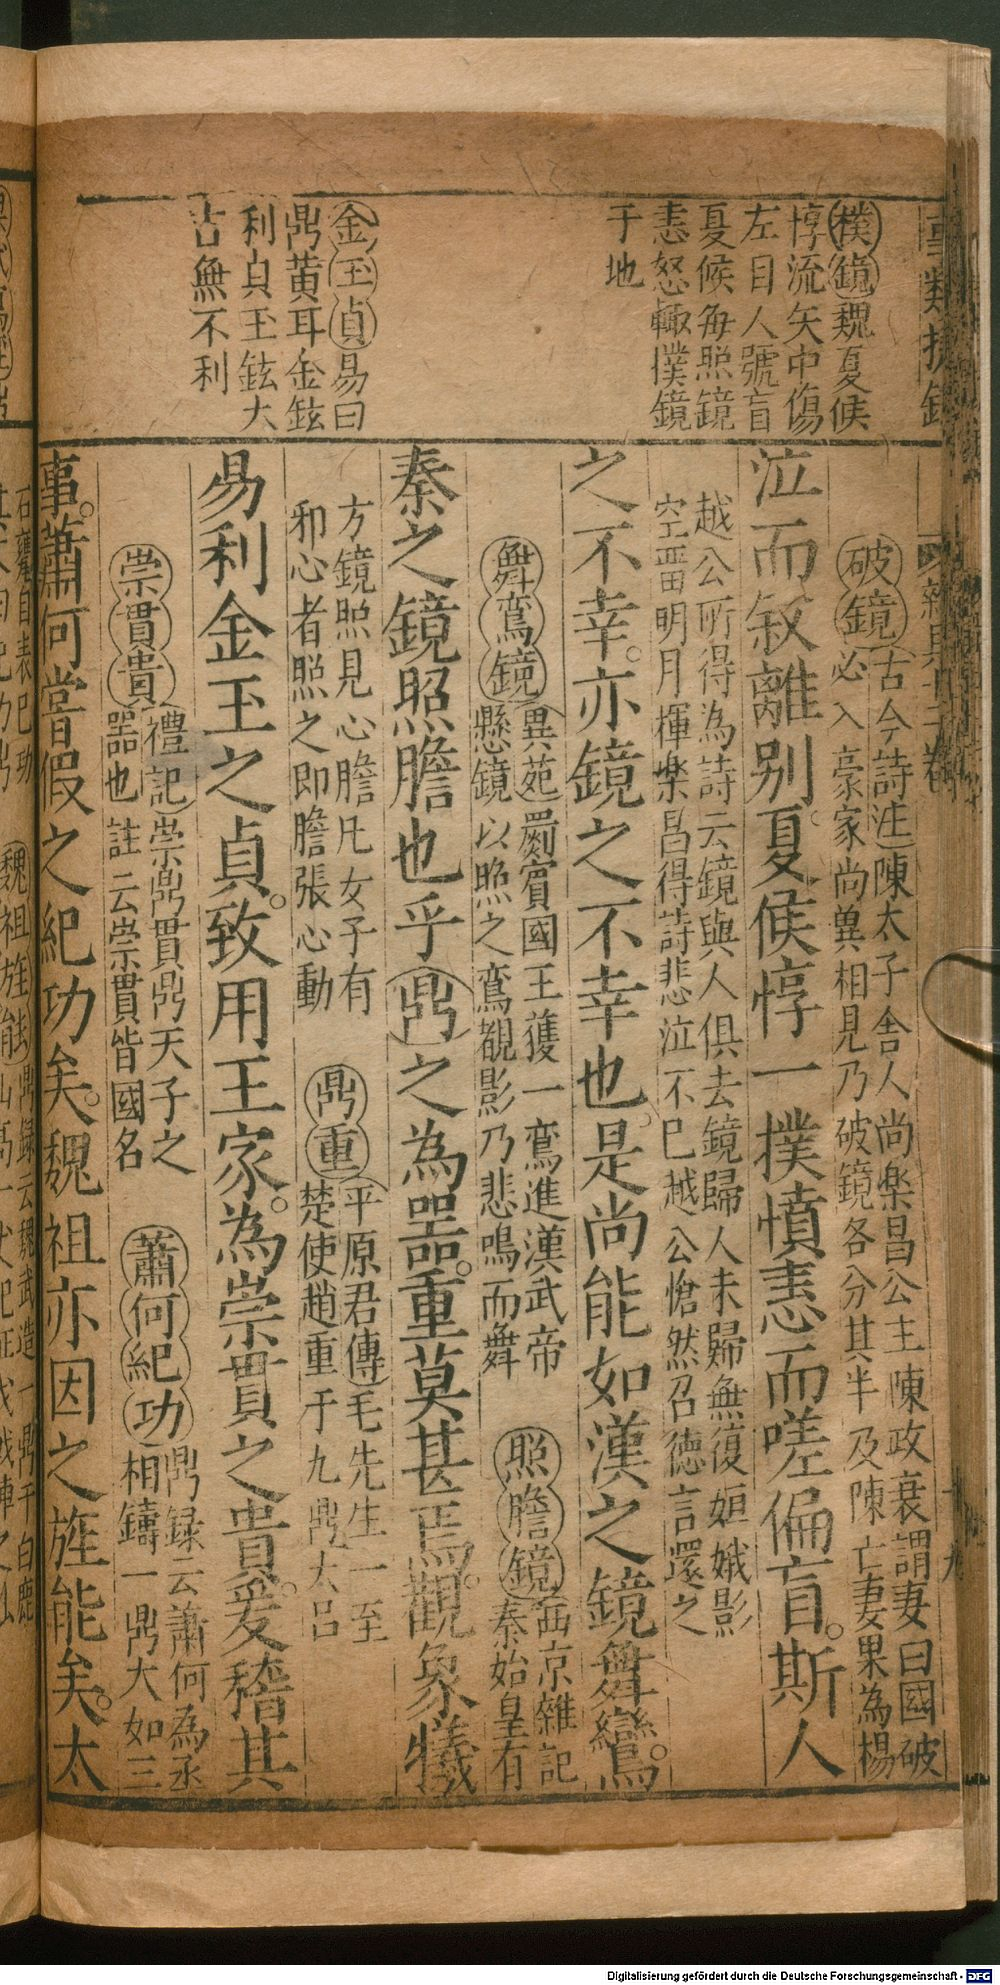 撲鏡魏夏侯
惇流矢中傷
左目人號盲
夏候每照鏡
恚怒輙撲鏡
于地
金玉貞易曰
鼎黃耳金鉉
利貞玉鉉大
吉無不利
破鏡古今詩注陳太子舍人尚樂昌公主陳政衰謂妻曰國破
必入豪家尚兾相見乃破鏡各分其半及陳亡妻果為楊
泣而敘離别夏候惇一撲憤恚而嗟偏盲斯人
越公所得為詩云鏡與人俱去鏡歸人未歸無復姮娥影
空畱明月揮樂昌得詩悲泣不已越公愴然召德言還之
之不幸亦鏡之不幸也是尚能如漢之鏡舞鸞
舞鸞鏡異苑罽賓國王獲一鸞進漢武帝
懸鏡以照之鸞覩影乃悲鳴而舞
照膽鏡西京雜記
秦始皇有
秦之鏡照膽也乎鼎之為噐重莫甚焉觀象犧
方鏡照見心膽凡女子有
邪心者照之即膽張心動
鼎重平原君傳毛先生一至
楚使趙重于九鼎大吕
易利金玉之貞致用王家為崇貫之貴爰稽其
崇貫貴禮記崇鼎貫鼎天子之
噐也註云崇貫皆國名
蕭何紀功鼎録云蕭何為丞
相鑄一鼎大如三
事蕭何嘗假之紀功矣魏祖亦因之旌能矣太
Digitalisierung gefördert durch die Deutsche Forschungsgemeinschaft - DFG